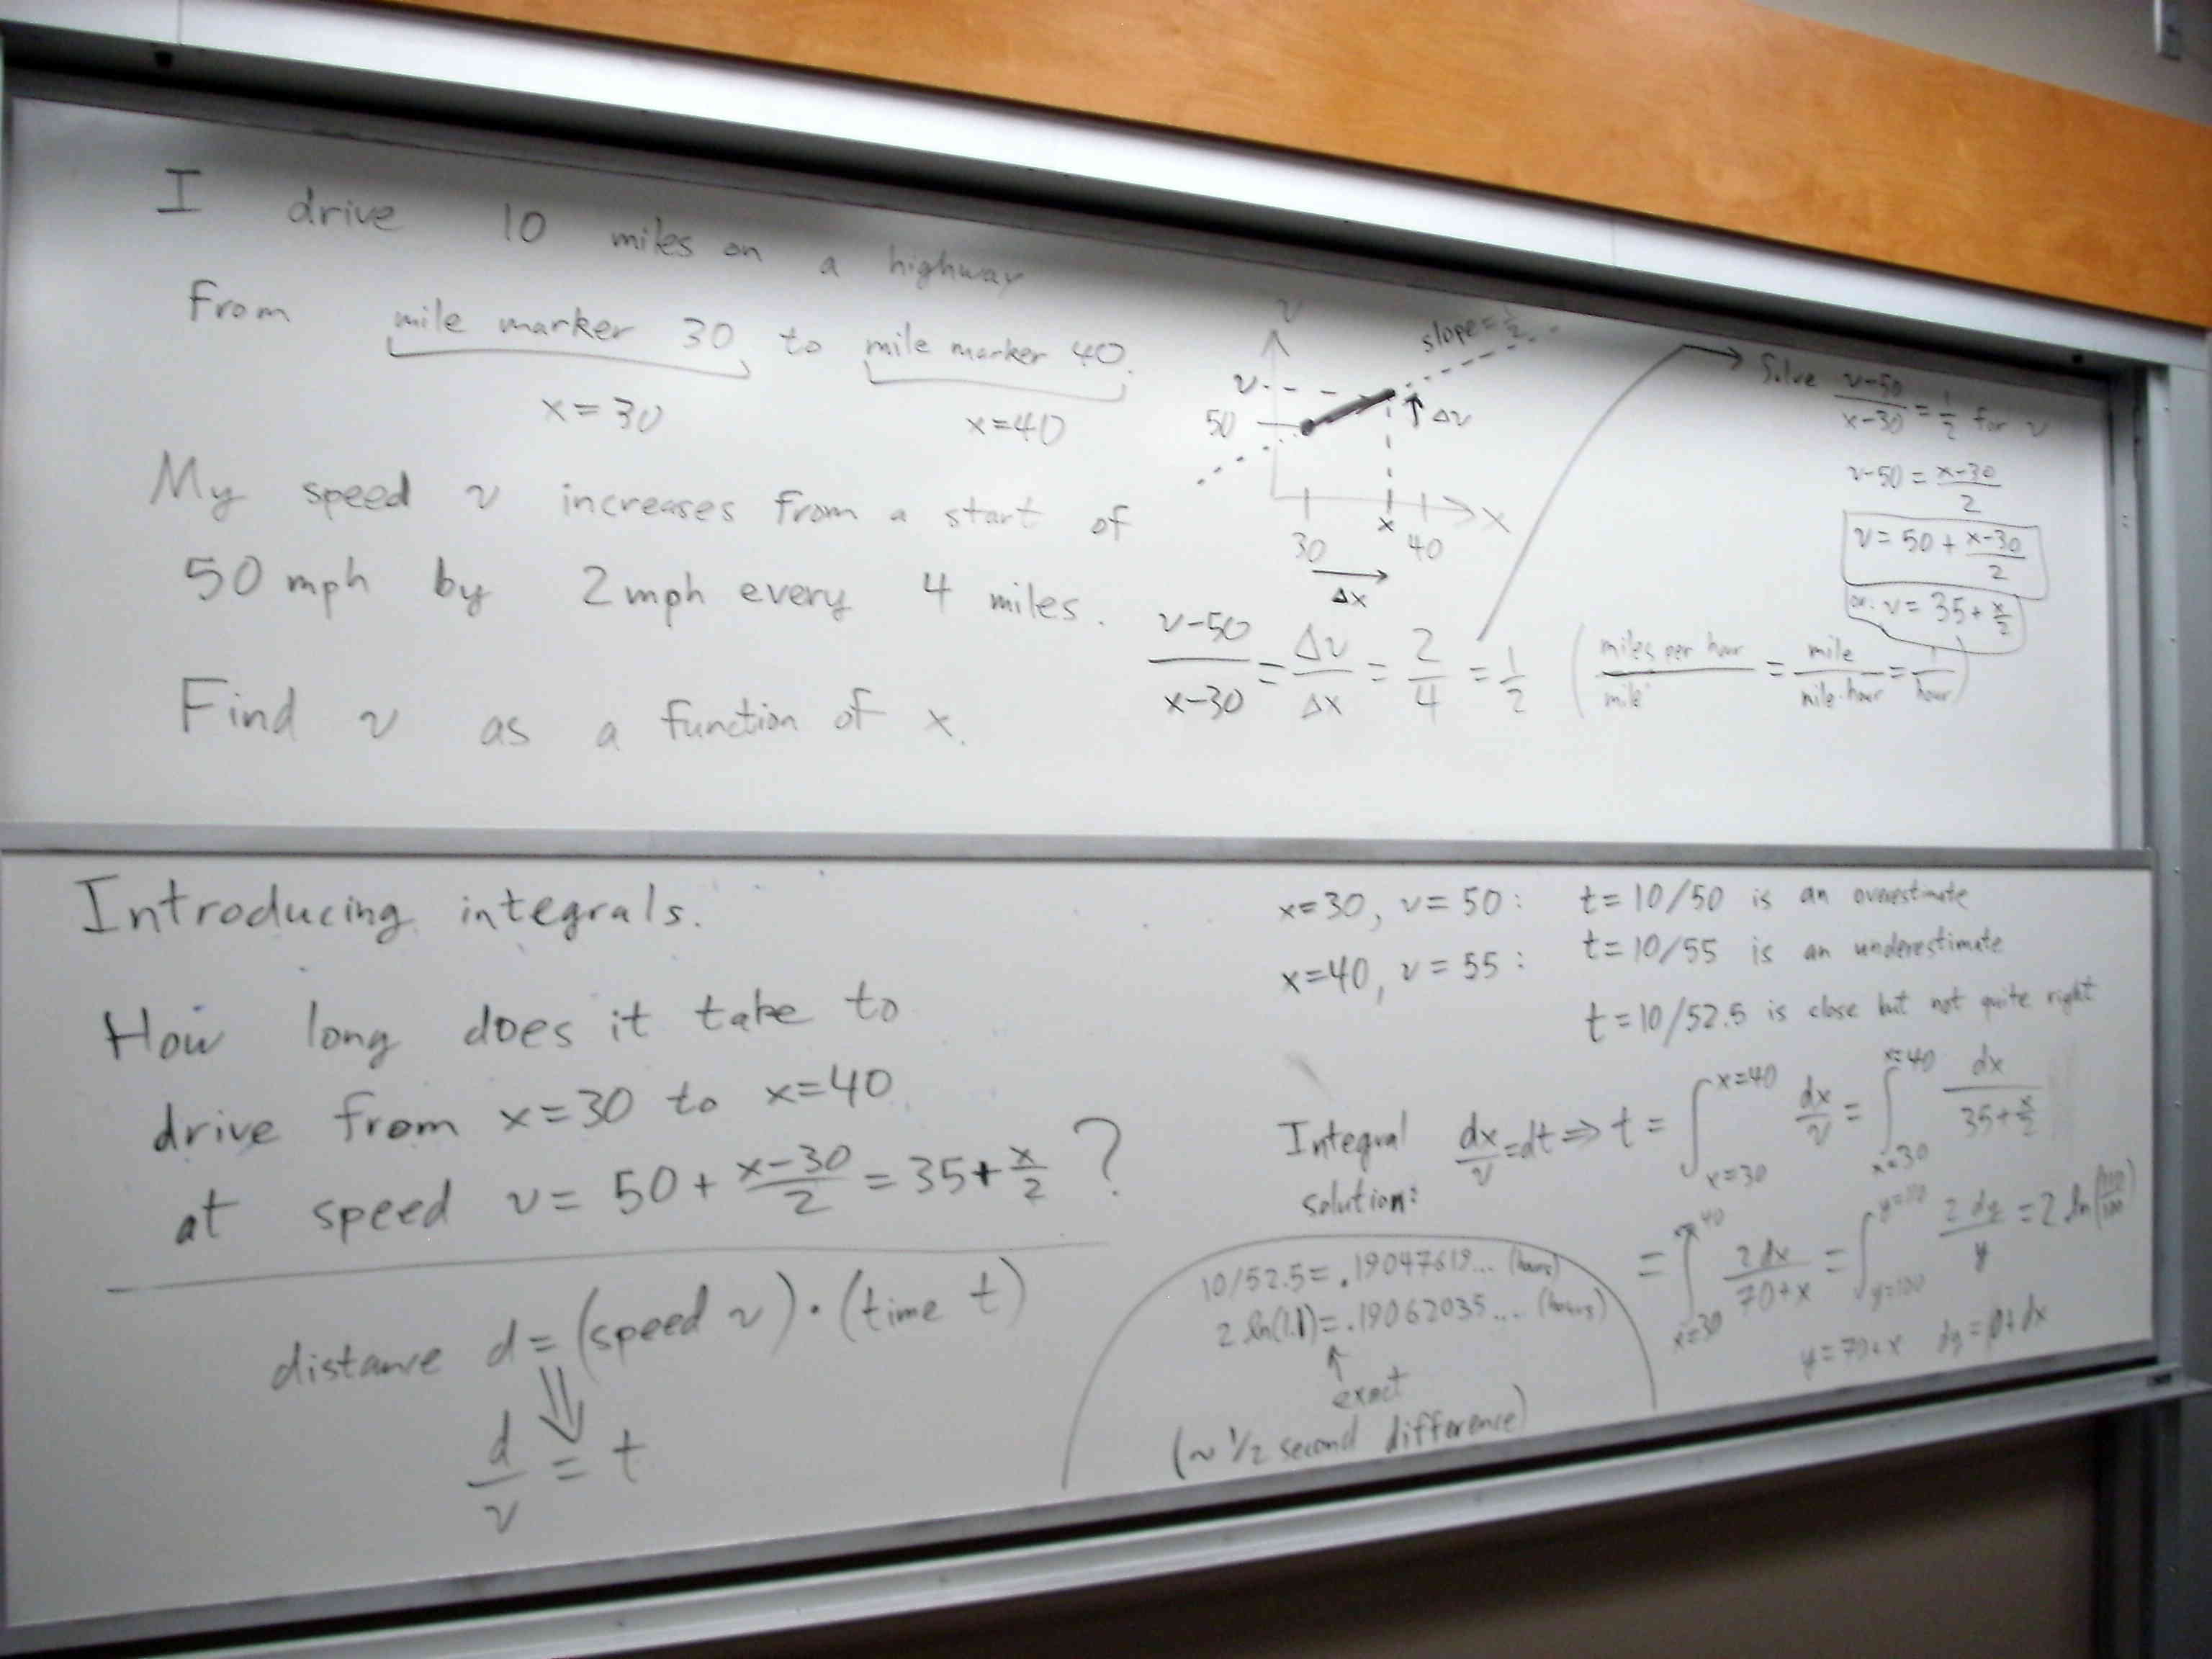 I drive 10 miles on a highway
From mile marker 30 to mile marker 40.
x=30 x=40
My speed v increases from a start of
50 mph by 2mph every 4 miles.
Find v as a function of x.
v
slope=1/2
v
50
Δv
30 x 40 x
Δx
(v-50)/(x-30) = Δv/Δx = 2/4 = 1/2 (miles per hour/mile = mile/mile·hour = 1/hour)
Solve (v-50)/(x-30) = 1/2 for v
v-50 = (x-30)/2
v = 50 + (x-30)/2
or: v = 35 + x/2
Introducing integrals.
How long does it take to
drive from x=30 to x=40
at speed v = 50 + (x-30)/2 = 35 + x/2 ?
distance d = (speed v)·(time t)
⇓
d/v = t
x=30, v=50: t=10/50 is an overestimate
x=40, v=55: t=10/55 is an underestimate
t=10/52.5 is close but not quite right
Integral solution: dx/v = dt ⇒ t = ∫_{x=30}^{x=40} dx/v = ∫_{x=30}^{x=40} dx/(35+x/2)
= ∫_{x=30}^{40} 2dx/(70+x) = ∫_{y=100}^{y=110} 2dy/y = 2 ln(110/100)
y=70+x dy=0+dx
10/52.5 = .19047619... (hours)
2 ln(1.1) = .19062035... (hours)
↑
exact
(~ 1/2 second difference)